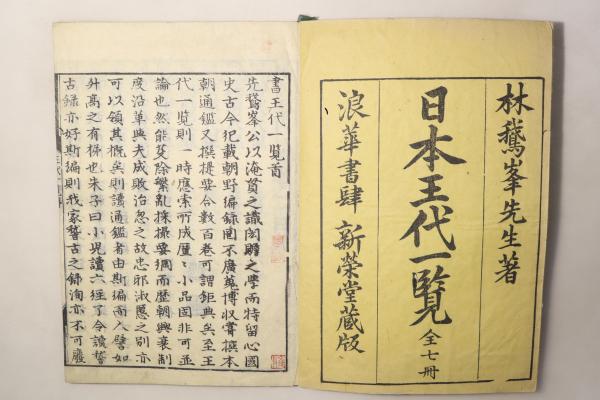 林鵞峯先生著
日本王代一覧 全七冊
浪華書肆 新榮堂藏版
書王代一覧首
先鵞峯公以淹貫之識閎贍之學而特留心國
史古今紀載朝野編録罔不廣蒐博収嘗撰本
朝通鑑又撰提要合數百卷可謂鉅典矣至王
代一覧則一時應索所成小品固非可並
論也然能芟除繁亂採撮要領而歷朝興衰制
度沿革與夫成敗治忽之故忠邪淑慝之別亦
可以領其概矣則讀通鑑者由斯編而入譬如
升高之有梯也朱子曰小兒讀六經了令讀稽
古録亦好斯編則我家稽古之録洵亦不可廢